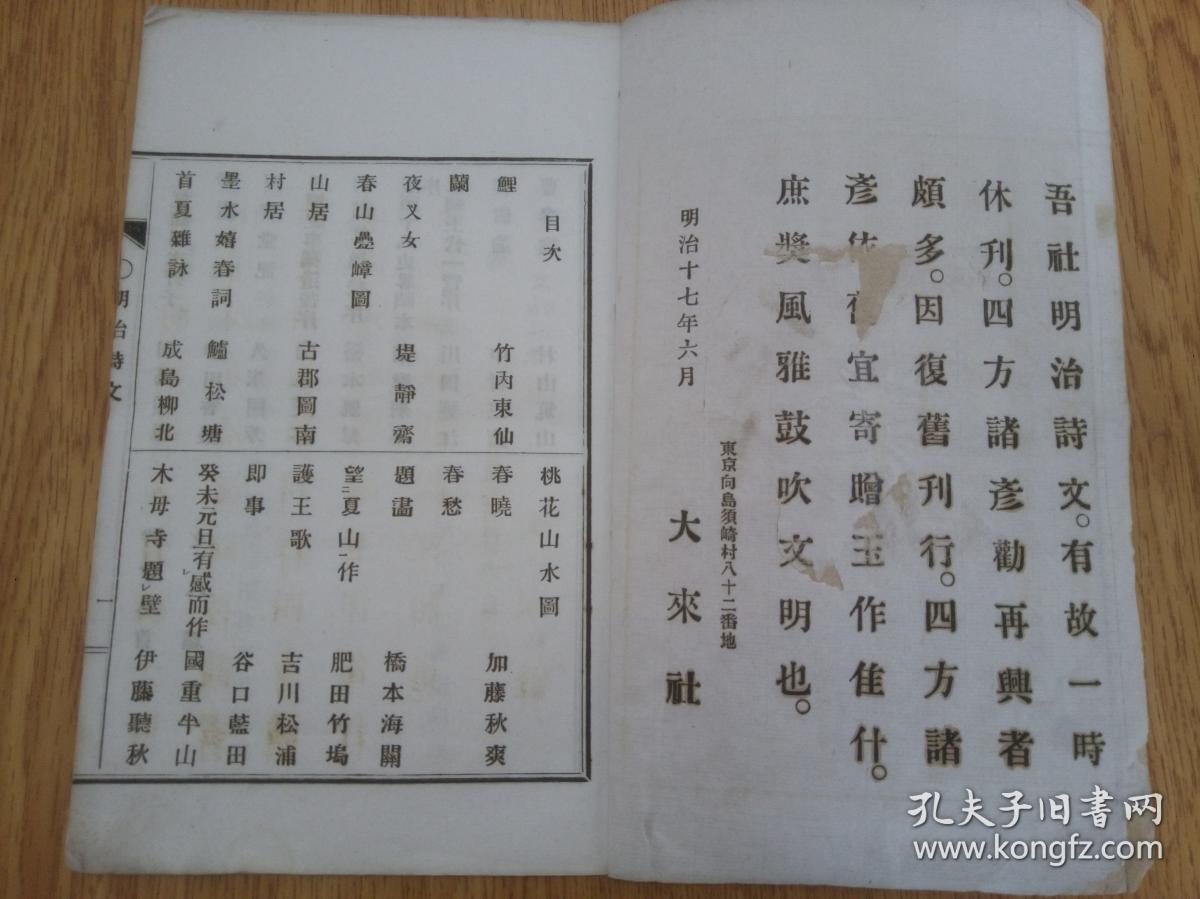 吾社明治詩文。有故一時
休刊。四方諸彥勸再興者
頗多。因復舊刊行。四方諸
彥依舊宜寄贈玉作佳什。
庶奬風雅鼓吹文明也。
明治十七年六月
東京向島須崎村八十二番地
大來社
目次
鯉 竹內東仙
蘭
夜叉女 堤靜齋
春山疊嶂圖
山居 古郡圖南
村居
墨水嬉春詞 鱸松塘
首夏雜詠 成島柳北
桃花山水圖
春曉 加藤秋爽
春愁
題畵 橋本海關
望二夏山一作 肥田竹塢
護王歌 吉川松浦
即事 谷口藍田
癸未元旦有レ感而作 國重半山
木母寺題レ壁 伊藤聽秋
明治詩文
一
孔夫子旧书网
www.kongfz.com